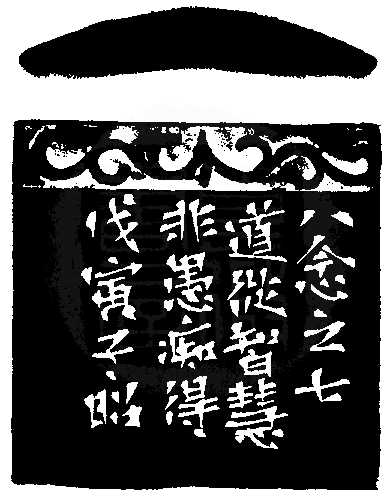 八念之七
道從智慧
非愚癡得
戊寅子昭